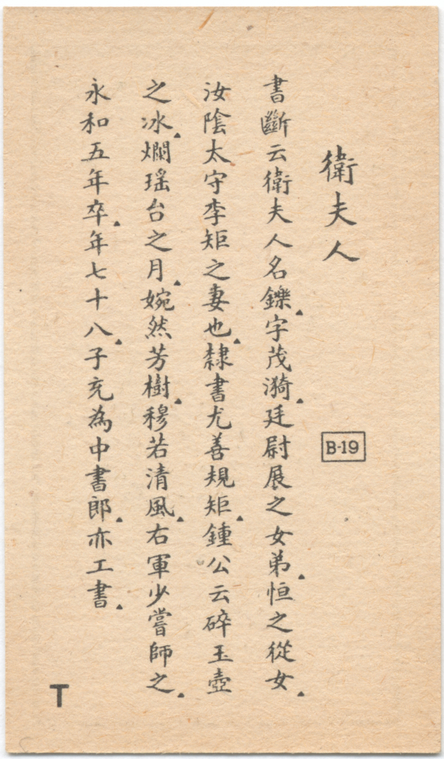 衛夫人
B-19
書斷云衛夫人名鑠字茂漪廷尉展之女弟恒之從女
汝陰太守李矩之妻也隸書尤善規矩鍾公云碎玉壺
之冰爛瑶台之月婉然芳樹穆若清風右軍少嘗師之
永和五年卒年七十八子充為中書郎亦工書
T